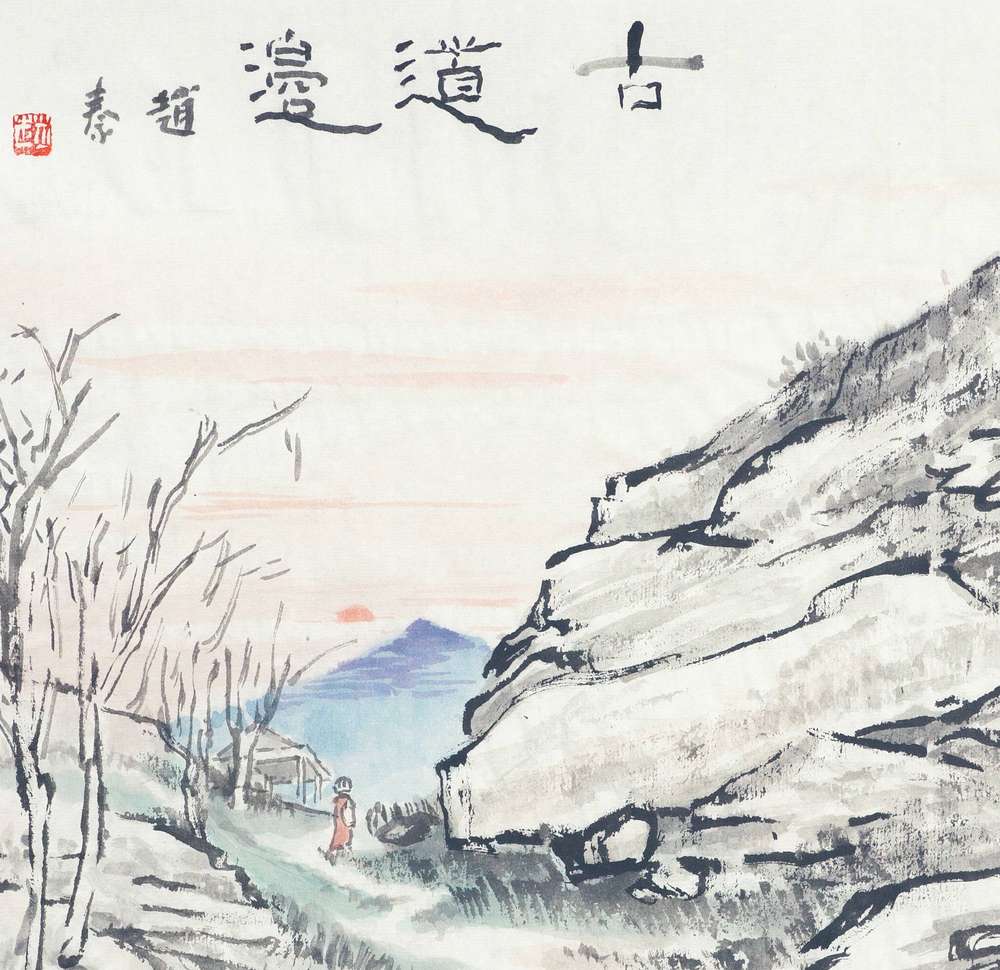 古道邊 趙